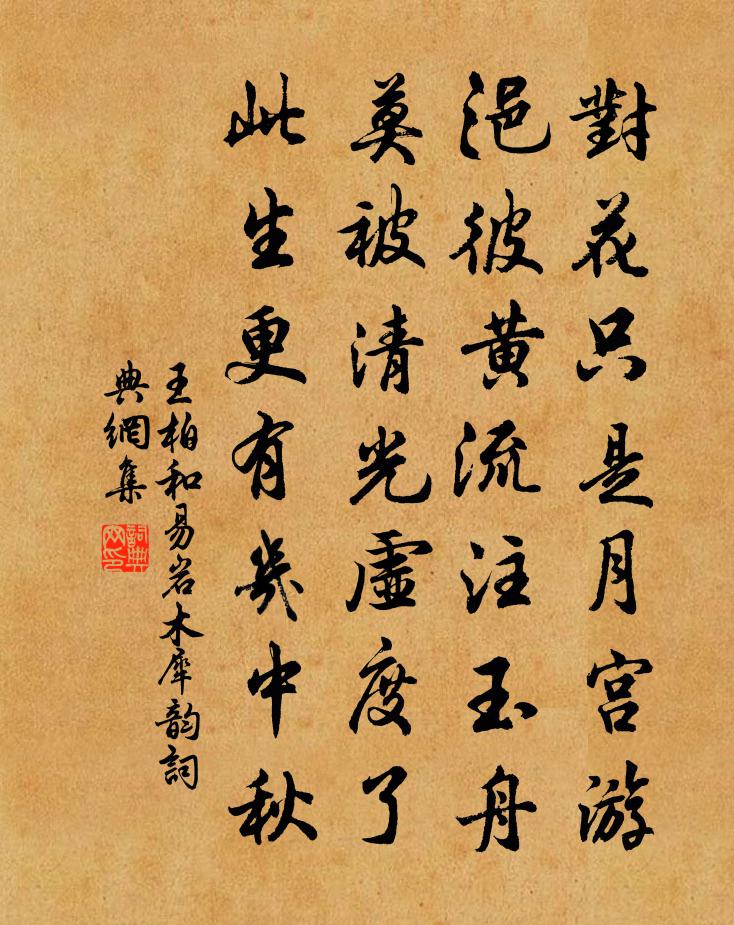 對花只是月宮游
浥彼黄流注玉舟
莫被清光虛度了
此生更有幾中秋
王柏和易岩木犀韵詞
典網集
詞典网印